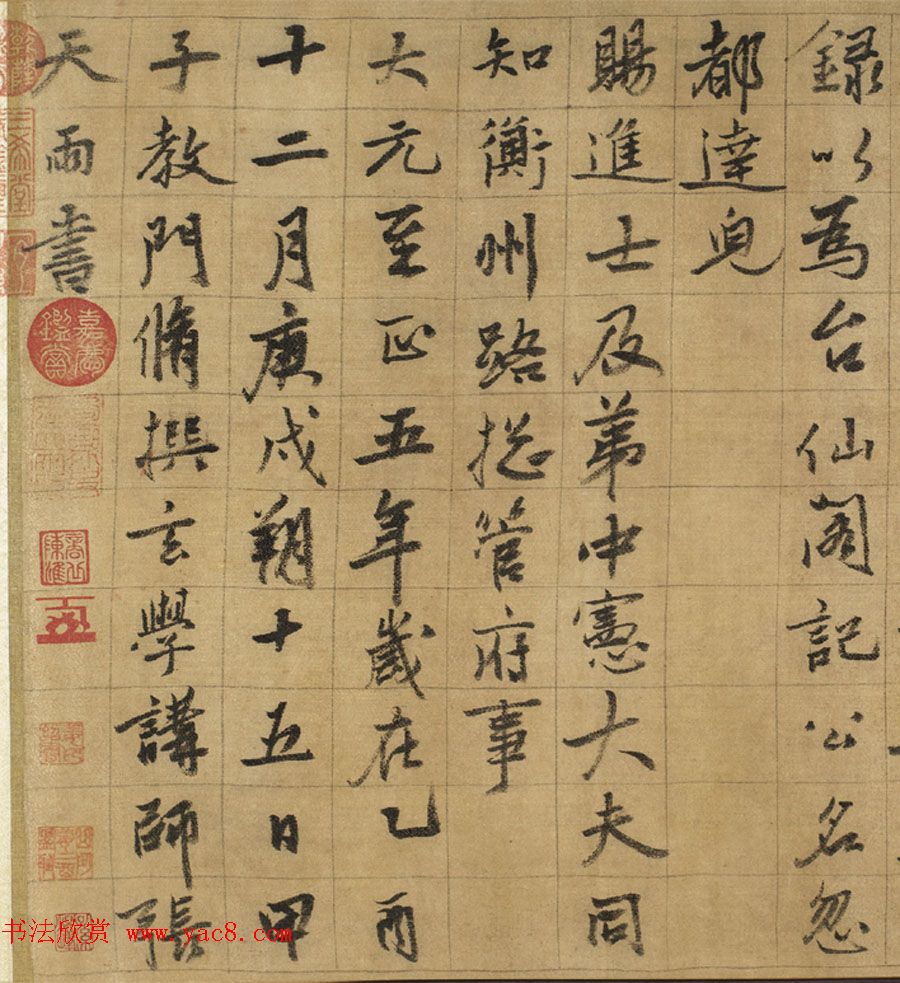 錄以為台仙閣記公名忽
都達皃
賜進士及第中憲大夫同
知衡州路捴管府事
大元至正五年歲在乙酉
十二月庚戌朔十五日甲
子教門脩撰玄學講師張
天雨書
嘉慶鑑賞
三希堂
书法欣赏 www.yac8.com